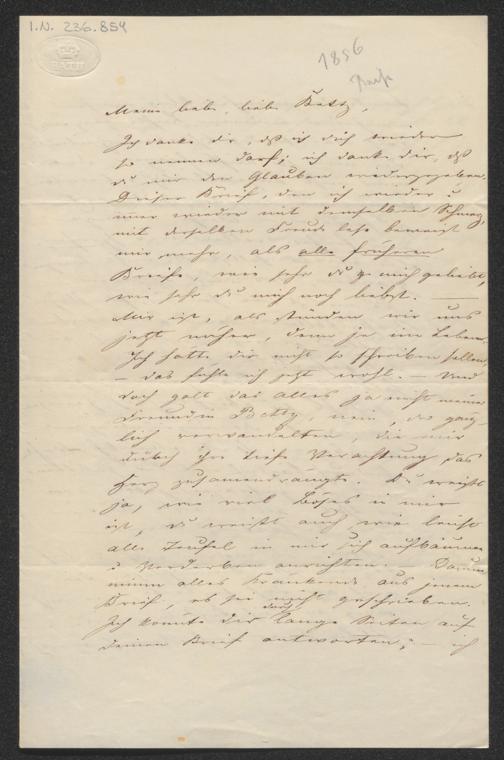 I.N. 236.854
BATH
1856
Meine liebe, liebe Betty,
Ich danke dir, daß ich dich wieder
so nennen darf; ich danke dir, daß
du mir den Glauben wiedergegeben.
Dieser Brief, den ich wieder u
immer wieder mit demselben Schmerz,
mit derselben Freude lese beweist
mir mehr, als alle früheren
Briefe, wie sehr du mich geliebt,
wie sehr du mich noch liebst. —
Mir ist, als stünden wir uns
jetzt näher, denn je im Leben.
Ich hätte dir nicht so schreiben sollen,
— das fühle ich jetzt wohl. — Und
doch galt das alles ja nicht meiner
Freundin Betty, nein, der gänz-
lich verwandelten, die mir
durch ihre tiefe Verachtung das
Herz zusammendrängte. Du weißt
ja, wie viel Böses in mir
ist, du weißt auch, wie leicht
alle Teufel in mir sich aufbäumen
u Verderben anrichten. — Darum
nimm alles Kränkende aus jenem
Brief, als sei nicht geschrieben.
Ich könnte dir lange Seiten auf
deinen Brief antworten; — ich